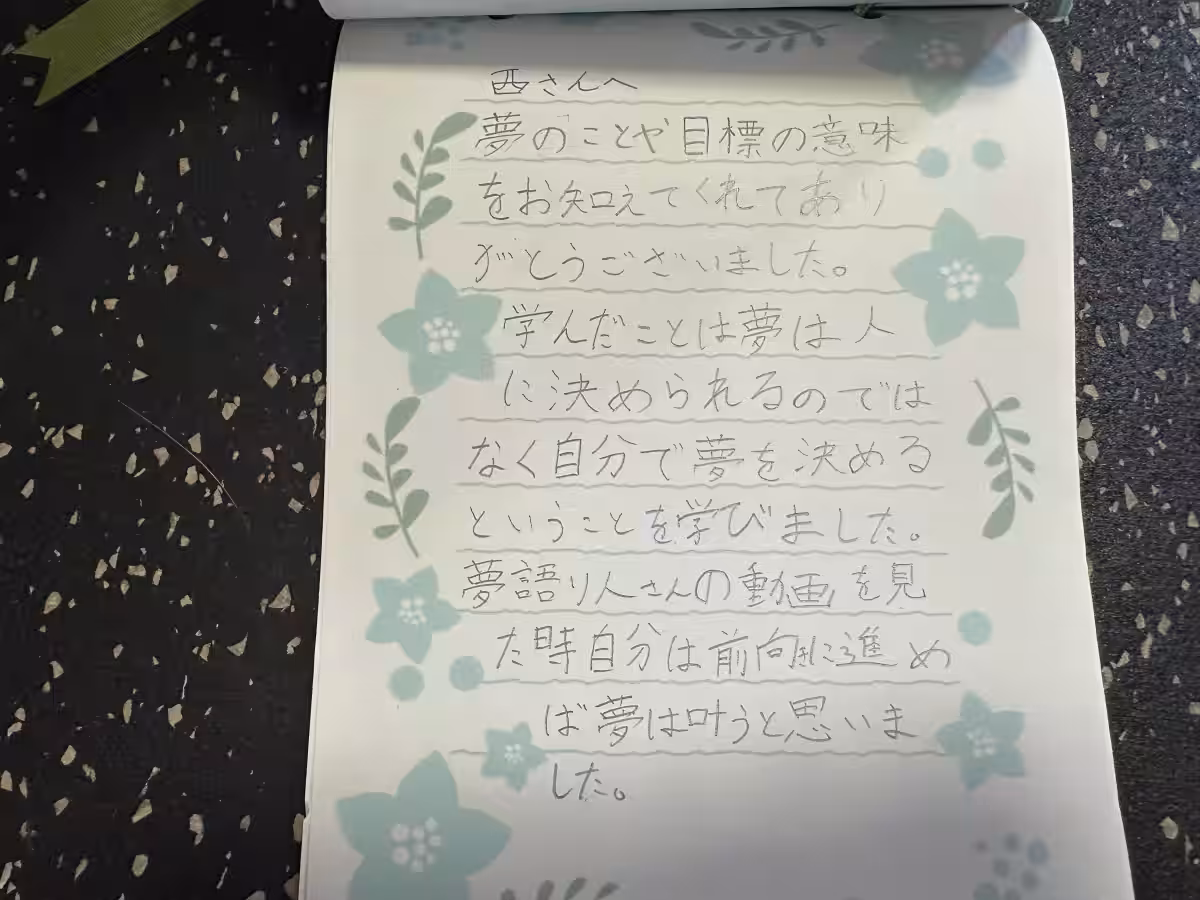 西さんへ
夢のことや目標の意味
をお知えてくれてあり
がとうございました。
学んだことは夢は人
に決められるのでは
なく自分で夢を決める
ということを学びました。
夢語り人さんの動画を見
た時自分は前向きに進め
ば夢は叶うと思いま
した。